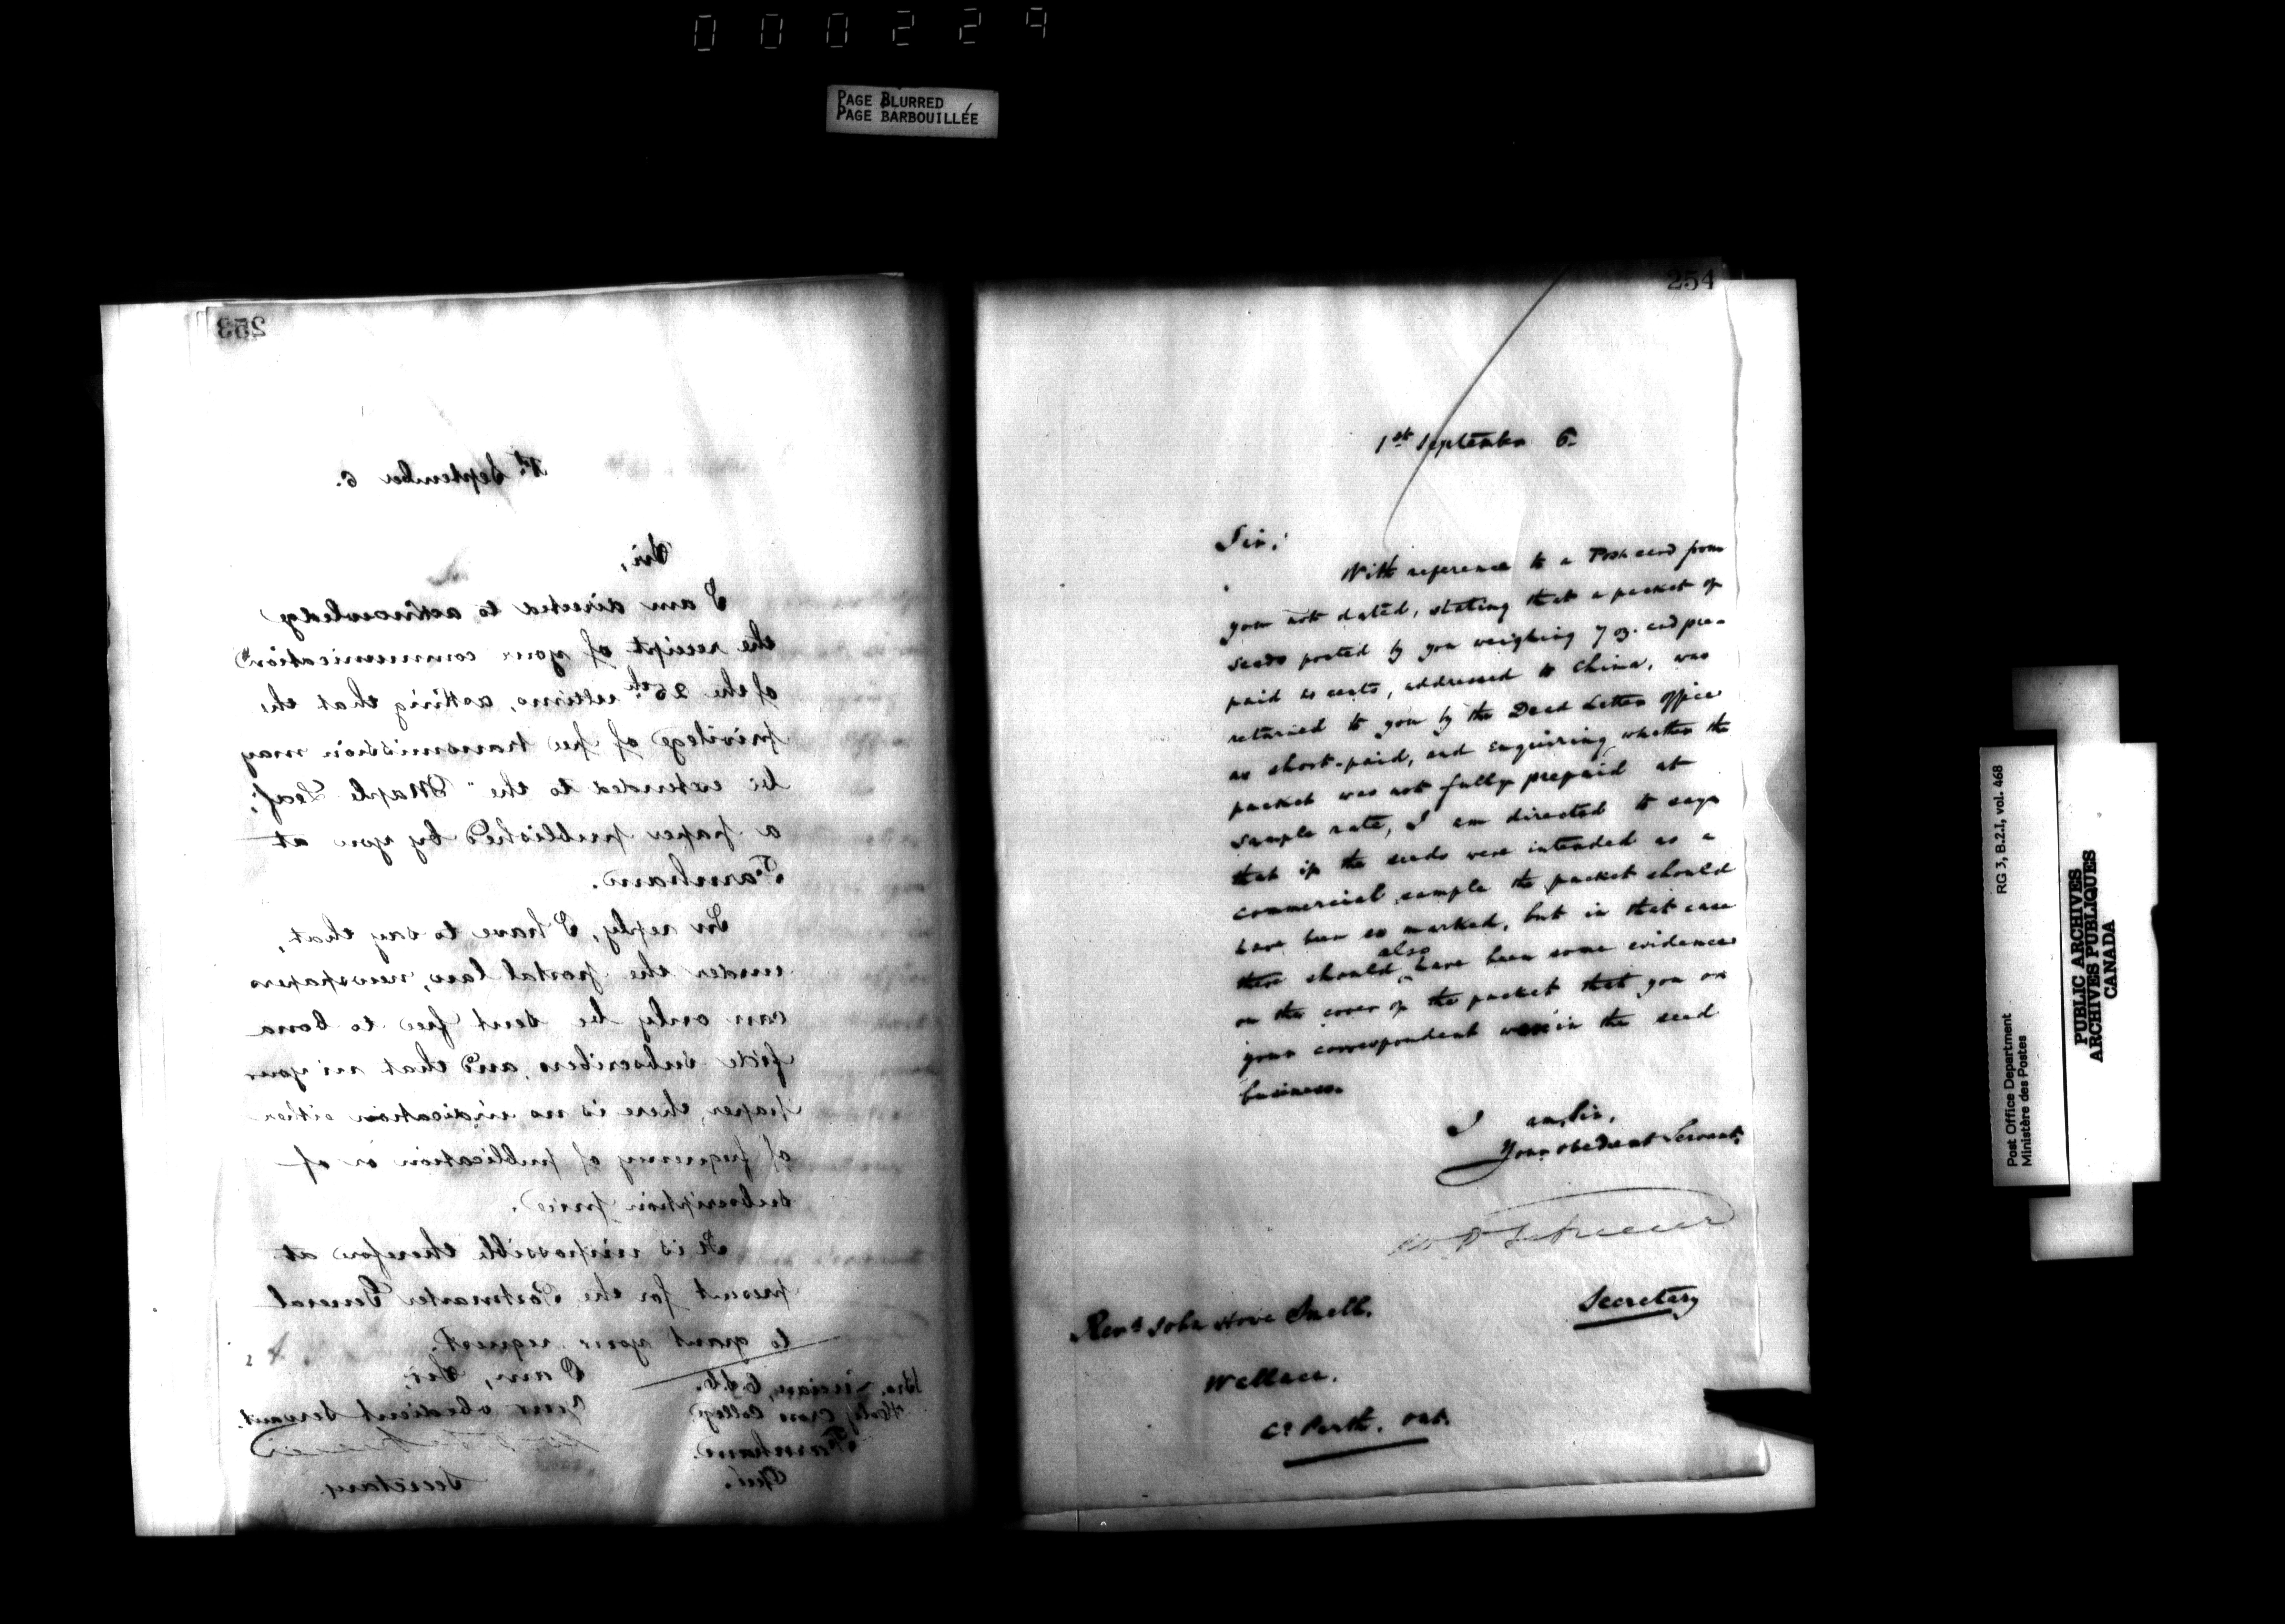 000229
PAGE BLURRED
PAGE BARBOUILLÉE
253
1st September 6.
Sir,
I am directed to acknowledge
the receipt of your communication
of the 26th ultimo, asking that the
privilege of free transmission may
be extended to the "Maple Leaf,"
a paper published by you at
Farnham.
In reply, I have to say that,
under the postal law, newspapers
can only be sent free to bona
fide subscribers, and that in your
paper, there is no indication either
of frequency of publication or of
subscription price.
It is impossible therefore at
present for the Postmaster General
to grant your request.
I am, Sir,
Your obedient Servant.
Secretary.
Bro. C.S.C.
Holy Cross College
Farnham.
Que.
254
1st September 6.
Sir,
With reference to a Post card from
you not dated, stating that a packet of
seeds posted by you weighing 7 oz. and pre-
paid 4 cents, addressed to China, was
returned to you by the Dead Letter Office
as short-paid, and enquiring whether the
packet was not fully prepaid at
sample rate, I am directed to say
that if the seeds were intended as a
commercial sample the packet should
have been so marked, but in that case
there should also have been some evidence
on the cover of the packet that you or
your correspondent were in the seed
business.
I am, Sir,
Your obedient Servant.
Secretary
Revd. John Snell.
Wallace.
Co Perth. Ont.
Post Office Department
Ministère des Postes
RG 3, B.2.I, vol. 468
PUBLIC ARCHIVES
ARCHIVES PUBLIQUES
CANADA